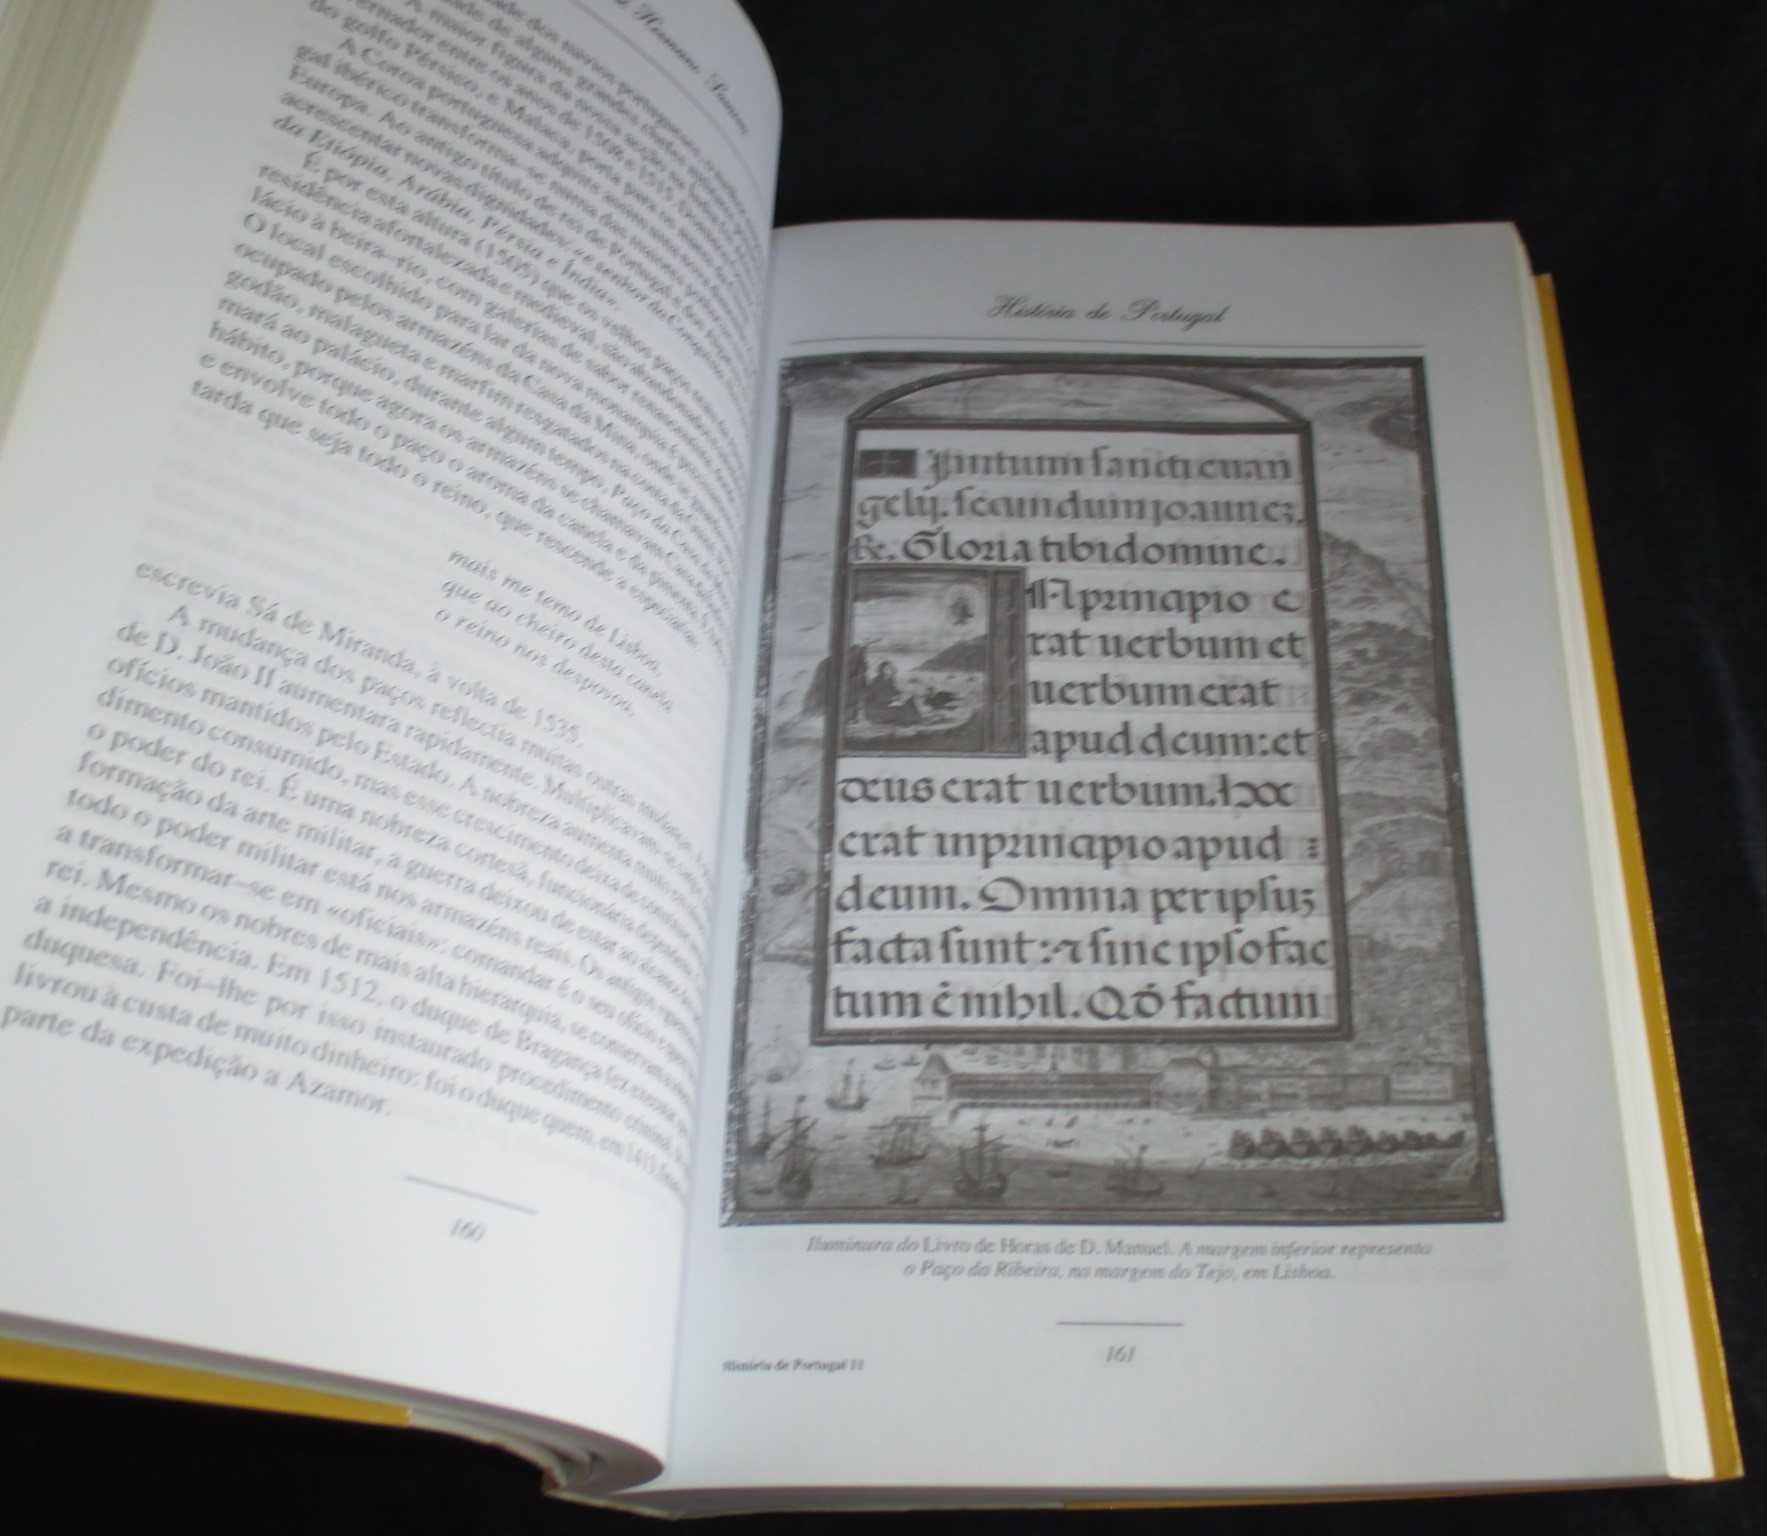 Hermano Saraiva
do golfo Pérsico, e Malaca, porta para os
A Coroa portuguesa adquire assim
gal ibérico transforma-se numa das maiores
Europa. Ao antigo título de rei de Portugal e dos
acrescentar novas dignidades: «e senhor da Conquista,
da Etiópia, Arábia, Pérsia e Índia».
É por esta altura (1505) que os velhos paços
residência afortalezada e medieval, são abandonados
lácio à beira-rio, com galerias de sabor renascentista
O local escolhido para lar da nova monarquia é
ocupado pelos armazéns da Casa da Mina, onde se
godão, malagueta e marfim resgatados na costa da
mará ao palácio, durante algum tempo, Paço da Casa da
hábito, porque agora os armazéns se chamavam Casa
e envolve todo o paço o aroma da canela e da pimenta.
tarda que seja todo o reino, que rescende a especiarias:
mais me temo de Lisboa,
que ao cheiro desta canela
o reino nos despovoa,
escrevia Sá de Miranda, à volta de 1535.
A mudança dos paços reflectia muitas outras mudanças.
de D. João II aumentara rapidamente. Multiplicavam-se
ofícios mantidos pelo Estado. A nobreza aumenta muito
dimento consumido, mas esse crescimento deixa de
o poder do rei. É uma nobreza cortesã, funcionária
formação da arte militar, a guerra deixou de estar ao alcance
todo o poder militar está nos armazéns reais. Os antigos
a transformar-se em «oficiais»: comandar é o seu ofício e
rei. Mesmo os nobres de mais alta hierarquia, se conservam
a independência. Em 1512, o duque de Bragança fez
duquesa. Foi-lhe por isso instaurado procedimento criminal,
livrou à custa de muito dinheiro: foi o duque quem, em 1413,
parte da expedição a Azamor.
160
História de Portugal
Inıtium sancti euan
gelij. secundum joannez.
Re. Gloria tibi domine.
IN principio e
rat uerbum et
uerbum erat
apud deum: et
deus erat uerbum. hoc
erat in principio apud
deum. Omnia per ipsuz
facta sunt: ⁊ sine ipso fac
tum ē nihil. Qđ factum
Iluminura do Livro de Horas de D. Manuel. A margem inferior representa
o Paço da Ribeira, na margem do Tejo, em Lisboa.
História de Portugal 11
161